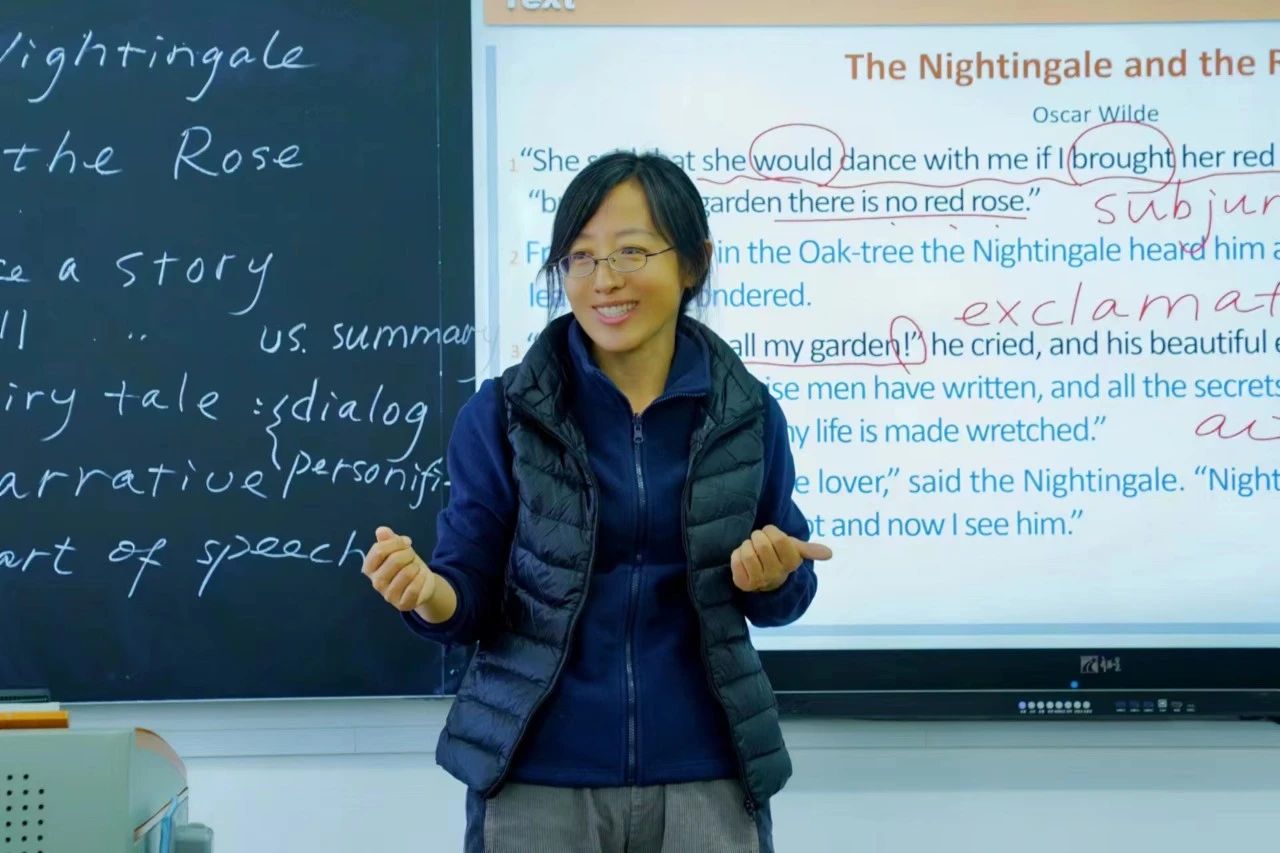 Nightingale
the Rose
a story
us. summary
tale : { dialog
narrative personifi-
part of speech
Text
The Nightingale and the R
Oscar Wilde
1 “She said that she would dance with me if I brought her red
garden there is no red rose.”
subjun
2 in the Oak-tree the Nightingale heard him a
wondered.
exclamat
3 “ all my garden!” he cried, and his beautiful e
wise men have written, and all the secrets
my life is made wretched.”
lover,” said the Nightingale. “Night
and now I see him.”